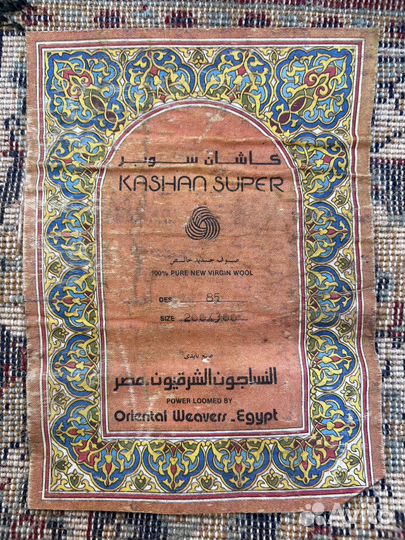 كاشان سوبر
KASHAN SUPER
صوف جديد خالص
100% PURE NEW VIRGIN WOOL
DES 85
SIZE
صنع بأيدي
النساجون الشرقيون، مصر
POWER LOOMED BY
Oriental Weavers - Egypt
Avito